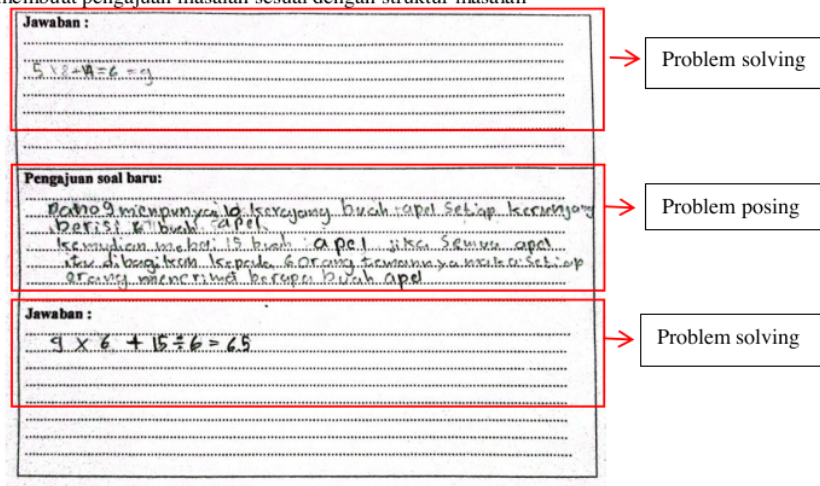 membuat pengajuan masalah sesuai dengan struktur masalah
Jawaban :
Problem solving
Pengajuan soal baru:
buah apel Setiap
berisi 6 buah apel
kemudian 15 buah apel jika semua apel
itu dibagikan kepada 6 orang temannya maka setiap
orang menerima berapa buah apel
Problem posing
Jawaban :
9 x 6 + 15 ÷ 6 = 65
Problem solving